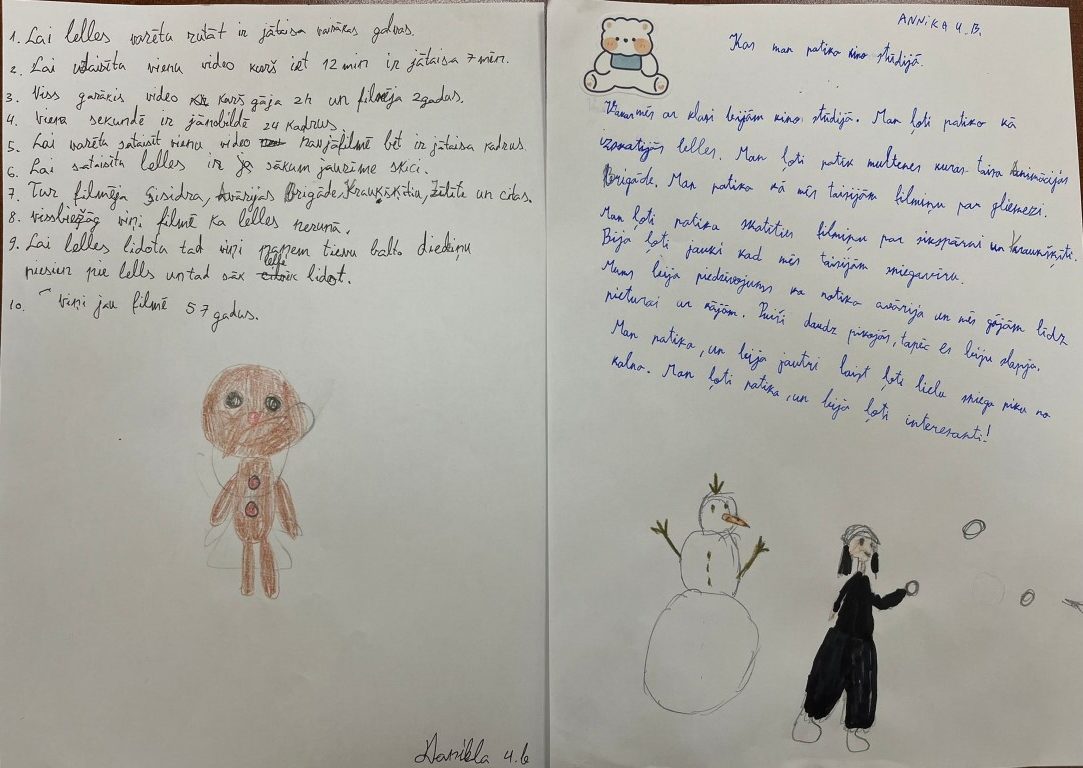 1. Lai lelles varētu runāt ir jātaisa vairākas galvas.
2. Lai uztaisītu vienu video kurš iet 12 min ir jātaisa 7 mēn.
3. Viss garākis video kurš gāja 2h un filmēja 2gadus.
4. Viena sekundē ir jānobildē 24 kadrus
5. Lai varētu sataisīt vienu video nav jāfilmē bet ir jātaisa kadrus.
6. Lai sataisītu lelles ir jo sākum jauzīme skici.
7. Tur filmēja Sisidra, Avārijas Brigāde, Kraukšķītis, Zītīte un citas.
8. vissbiežāg viņi filmē ka lelles nerunā.
9. Lai lelles lidotu tad viņi paņem tievu balto diediņu
piesien pie lelles un tad sāk lelle lidot.
10. viņi jau filmē 57 gadus.
Daniela 4.b
ANNIKA 4.B.
Kas man patika kino studijā.
Vakar mēs ar klasi bijām kino studijā. Man ļoti patika kā
izskatījās lelles. Man ļoti patik multenes kuras taisa Animācijas
Brigāde. Man patika kā mēs taisījām filmiņu par gliemezi.
Man ļoti patika skatīties filmiņu par sikspārni un Kraukšķīti.
Bija ļoti jauki kad mēs taisījām sniegavīru.
Mums bija piedzīvojums ka notika avārija un mēs gājām līdz
pieturai ar kājām. Puiši daudz pikojās, tapēc es biju slapja.
Man patika, un bija jautri laist ļoti lielu sniega piku no
kalna. Man ļoti patika, un bija ļoti interesanti!